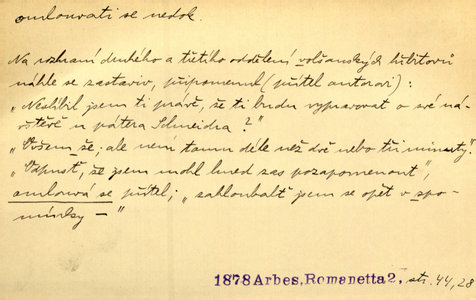 omlouvati se nedok.
Na rozhraní druhého a třetího oddělení volšanských hřbitovů
náhle se zastaviv, připomenul (přítel autorovi):
„Neslíbil jsem ti právě, že ti budu vypravovat o své ná-
vštěvě u pátera Schneidra?"
„Ovšem že; ale není tomu déle než dvě nebo tři minuty."
„Odpusť, že jsem mohl hned zas pozapomenout",
omlouvá se přítel; „zahloubalť jsem se opět v vzpo-
mínky —"
1878 Arbes, Romanetta 2, str. 44, 28